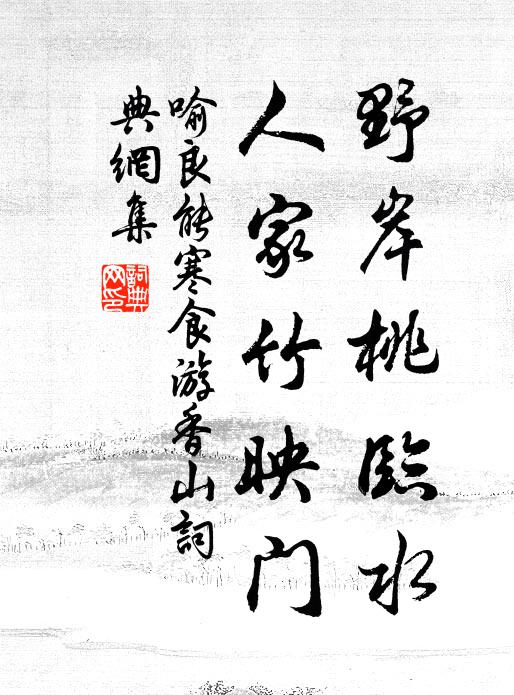 野岸桃臨水
人家竹映门
喻良能寒食游香山詞
典網集
詞典網印